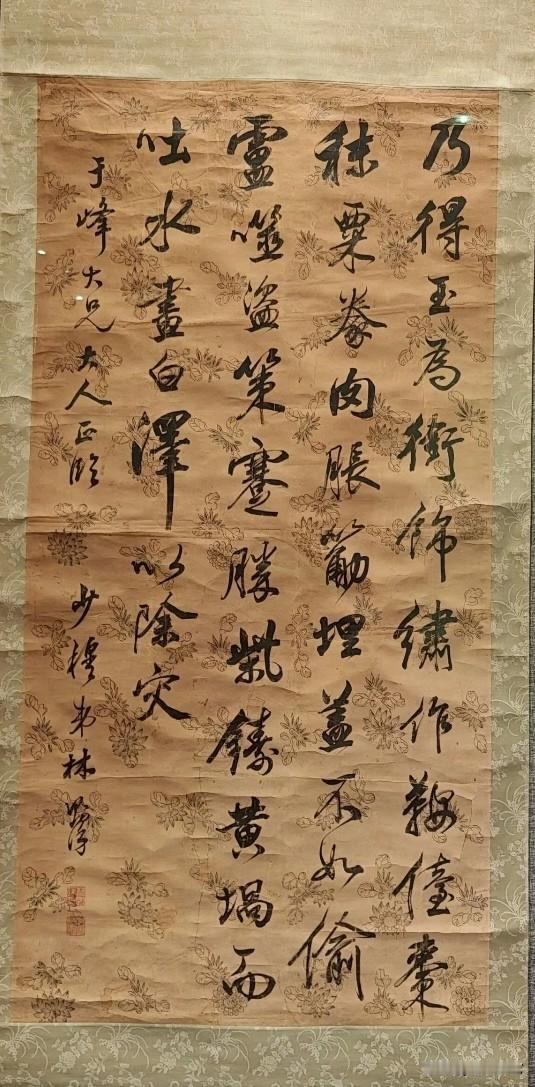 乃得玉為銜飾繡作鞍儓棗
秣粟豢肉脹筋埋蓋不如偷
盧噬盜策蹇勝氣鑄黃堨而
吐水畫白澤以除灾
于峰大兄大人正臨
少穆弟林則徐